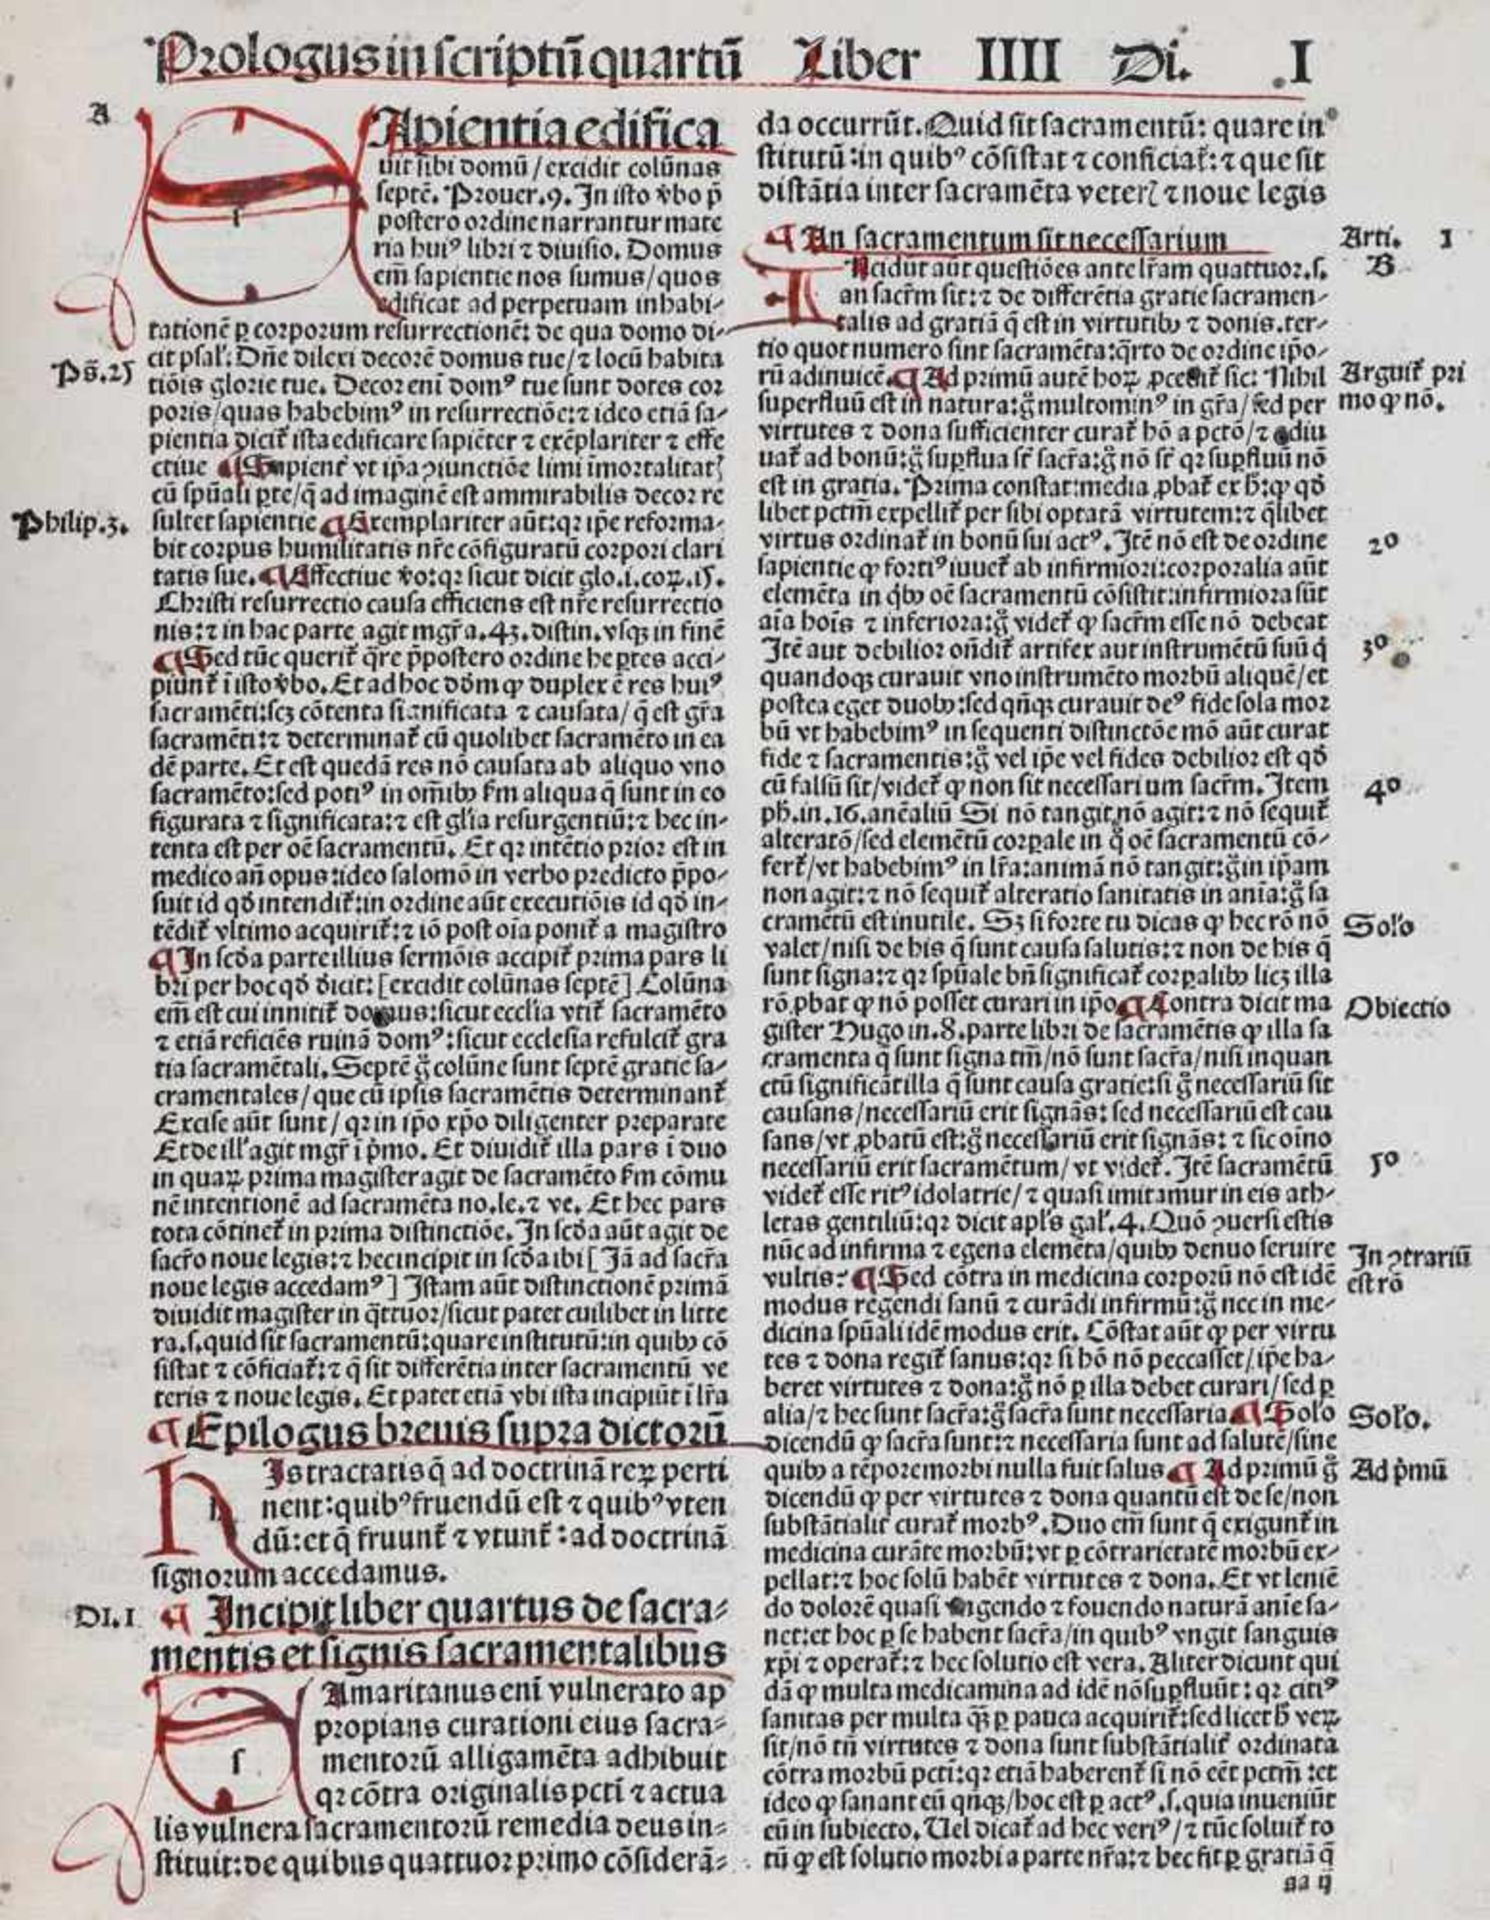 Prologus in scriptū quartū Liber IIII Di. .I
A
SApientia edifica
uit sibi domū / excidit colūnas
septē. Prouer.9. In isto v̄bo p̄
postero ordine narrantur mate
ria huiꝰ libri ⁊ diuisio. Domus
em̄ sapientie nos sumus/quos
edificat ad perpetuam inhabi-
tationē ꝑ corporum resurrectionē: de qua domo di-
cit psal'. Dn̄e dilexi decorē domus tue/⁊ locū habita
Ps̄.25
tiōis glorie tue. Decor eni domꝰ tue sunt dotes cor
poris/quas habebimꝰ in resurrectiōe:⁊ ideo etiā sa-
pientia dicit᷑ ista edificare sapiēter ⁊ exēplariter ⁊ effe
ctiue ¶ Sapient᷑ vt ip̄a ꝯiunctiōe limi īmortalitatꝭ
cū spūali ꝑte/q̄ ad imaginē est ammirabilis decor re
Philip.3.
sultet sapientie ¶ Exemplariter aūt:qꝛ ip̄e reforma-
bit corpus humilitatis nr̄e cōfiguratū corpori clari
tatis sue. ¶ Effectiue v̄o:qꝛ sicut dicit glo.i.coꝝ.15.
Christi resurrectio causa efficiens est nr̄e resurrectio
nis:⁊ in hac parte agit mgr̄ a.43.distin.vsqꝫ in finē
¶ Sed tūc querit᷑ q̄re p̄postero ordine he ꝑtes acci-
piunt᷑ ī isto v̄bo. Et ad hoc dd̄m ꝙ duplex ē res huiꝰ
sacramēti:scꝫ cōtenta significata ⁊ causata/q̄ est gr̄a
sacramēti:⁊ determinat᷑ cū quolibet sacramēto in ea
dē parte. Et est quedā res nō causata ab aliquo vno
sacramēto:sed potiꝰ in om̄ibꝫ s̄m aliqua q̄ sunt in eo
figurata ⁊ significata:⁊ est gl'ia resurgentiū:⁊ hec in-
tenta est per oē sacramentū. Et qꝛ intētio prior est in
medico an̄ opus:ideo salomō in verbo predicto p̄po-
suit id qd̄ intendit᷑:in ordine aūt executiōis id qd̄ in-
tēdit᷑ vltimo acquirit᷑:⁊ iō post oīa ponit᷑ a magistro
¶ In scd̄a parte illius sermōis accipit᷑ prima pars li
bri per hoc qd̄ dicit: [excidit colūnas septē] Colūna
em̄ est cui innitit᷑ domus:sicut ecclia vtit᷑ sacramēto
⁊ etiā reficiēs ruinā domꝰ:sicut ecclesia refulcit᷑ gra
tia sacramētali. Septē g̊ colūne sunt septē gratie sa-
cramentales/que cū ipsis sacramētis determinant᷑
Excise aūt sunt/qꝛ in ip̄o xp̄o diligenter preparate
Et de ill' agit mgr̄ ī p̄mo. Et diuidit᷑ illa pars ī duo
in quaꝝ prima magister agit de sacramēto s̄m cōmu
nē intentionē ad sacramēta no.le.⁊ ve. Et hec pars
tota cōtinet᷑ in prima distinctiōe. In scd̄a aūt agit de
sacr̄o noue legis:⁊ hec incipit in scd̄a ibi [Jā ad sacr̄a
noue legis accedamꝰ] Istam aūt distinctionē primā
diuidit magister in q̄ttuor/sicut patet cuilibet in litte
ra.s.quid sit sacramentū:quare institutū:in quibꝫ cō
sistat ⁊ cōficiat᷑:⁊ q̄ sit differētia inter sacramentū ve
teris ⁊ noue legis. Et patet etiā vbi ista incipiūt ī lr̄a
¶ Epilogus breuis supra dictorū
HIs tractatis q̄ ad doctrinā reꝝ perti
nent:quibꝰ fruendū est ⁊ quibꝰ vten
dū:et q̄ fruunt᷑ ⁊ vtunt᷑:ad doctrinā
signorum accedamus.
DI.1
¶ Incipit liber quartus de sacra-
mentis et signis sacramentalibus
SAmaritanus eni vulnerato ap
propians curationi eius sacra-
mentorū alligamēta adhibuit
qꝛ cōtra originalis pcti ⁊ actua
lis vulnera sacramentorū remedia deus in-
stituit:de quibus quattuor primo cōsiderā-
da occurrūt. Quid sit sacramentū: quare in
stitutū:in quibꝰ cōsistat ⁊ conficiat᷑:⁊ que sit
distātia inter sacramēta veterꝭ ⁊ noue legis
¶ An sacramentum sit necessarium
Arti. I
B
INcidūt aūt questiōes ante lr̄am quattuor.s.
an sacr̄m sit:⁊ de differētia gratie sacramen-
talis ad gratiā q̄ est in virtutibꝫ ⁊ donis.ter-
tio quot numero sint sacramēta:q̄rto de ordine ip̄o-
rū adinuicē. ¶ Ad primū autē hoꝝ ꝓcedit᷑ sic: Nihil
Arguit᷑ pri
mo ꝙ nō.
superfluū est in natura:g̊ multominꝰ in gr̄a/sed per
virtutes ⁊ dona sufficienter curat᷑ hō a pctō/⁊ adiu
uat᷑ ad bonū:g̊ supflua sr̄ sacr̄a:g̊ nō sr̄ qꝛ supfluū nō
est in gratia. Prima constat:media ꝓbat᷑ ex h̄:ꝙ qd̄
libet pctm̄ expellit᷑ per sibi optatā virtutem:⁊ q̄libet
virtus ordinat᷑ in bonū sui actꝰ. Itē nō est de ordine
20
sapientie ꝙ fortiꝰ iuuet᷑ ab infirmiori:corporalia aūt
elemēta in qͥbꝫ oē sacramentū cōsistit:infirmiora sūt
aīa hoīs ⁊ inferiora:g̊ videt᷑ ꝙ sacr̄m esse nō debeat
Itē aut debilior ondit᷑ artifex aut instrumētū suū qͥ
30
quandoqꝫ curauit vno instrumēto morbū aliquē/et
postea eget duobꝫ:sed qn̄qꝫ curauit deꝰ fide sola mor
bū vt habebimꝰ in sequenti distinctōe mō aūt curat
fide ⁊ sacramentis:g̊ vel ip̄e vel fides debilior est qd̄
cū falsū sit/videt᷑ ꝙ non sit necessarium sacr̄m. Item
40
ph̄.in.16.anēaliū Si nō tangit nō agit:⁊ nō sequit᷑
alteratō/sed elemētū corꝑale in q̊ oē sacramentū cō-
fert᷑/vt habebimꝰ in lr̄a:animā nō tangit:g̊ in ip̄am
non agit:⁊ nō sequit᷑ alteratio sanitatis in anīa:g̊ sa
cramētū est inutile. Sꝫ si forte tu dicas ꝙ hec rō nō
Sol'o
valet/nisi de his q̄ sunt causa salutis:⁊ non de his q̄
sunt signa:⁊ qꝛ spūale bn̄ significat᷑ corꝑalibꝫ licꝫ illa
rō ꝓbat ꝙ nō posset curari in ip̄o ¶ Contra dicit ma
Obiectio
gister Hugo in.8.parte libri de sacramētis ꝙ illa sa
cramenta q̄ sunt signa tm̄/nō sunt sacr̄a/nisi inquan
ctū significāt illa q̄ sunt causa gratie:si g̊ necessariū sit
causans/necessariū erit signās: sed necessariū est cau
sans/vt ꝓbatū est:g̊ necessariū erit signās: ⁊ sic oīno
necessariū erit sacramētum/vt videt᷑. Itē sacramētū
50
videt᷑ esse ritꝰ idolatrie/⁊ quasi imitamur in eis ath-
letas gentiliū:qꝛ dicit apl's gal'.4. Quō ꝯuersi estis
nūc ad infirma ⁊ egena elemēta/quibꝫ denuo seruire
In ꝯtrariū
est rō
vultis: ¶ Sed cōtra in medicina corporū nō est idē
modus regendi sanū ⁊ curādi infirmū:g̊ nec in me-
dicina spūali idē modus erit. Cōstat aūt ꝙ per virtu
tes ⁊ dona regit᷑ sanus:qꝛ si hō nō peccasset/ip̄e ha-
beret virtutes ⁊ dona:g̊ nō ꝑ illa debet curari/sed ꝑ
alia/⁊ hec sunt sacr̄a:g̊ sacr̄a sunt necessaria ¶ Sol'o
Sol'o.
dicendū ꝙ sacr̄a sunt:⁊ necessaria sunt ad salutē/sine
quibꝫ a tēpore morbi nulla fuit salus ¶ Ad primū g̊
Ad p̄mū
dicendū ꝙ per virtutes ⁊ dona quantū est de se/non
substātialit᷑ curat᷑ morbꝰ. Duo em̄ sunt q̄ exigunt᷑ in
medicina curāte morbū:vt ꝑ cōtrarietatē morbū ex-
pellat:⁊ hoc solū habēt virtutes ⁊ dona. Et vt leniē
do dolorē quasi vngendo ⁊ fouendo naturā anīe sa-
net:et hoc ꝑ se habent sacr̄a/in quibꝰ vngit sanguis
xp̄i ⁊ operat᷑:⁊ hec solutio est vera. Aliter dicunt qui
dā ꝙ multa medicamina ad idē nō supfluūt: qꝛ citiꝰ
sanitas per multa qͣꝫ ꝑ pauca acquirit᷑:sed licet h̄ veꝝ
sit/nō tn̄ virtutes ⁊ dona sunt substātialit᷑ ordinata
cōtra morbū pcti:qꝛ etiā haberent᷑ si nō eēt pctm̄ :et
ideo ꝙ sanant eū qn̄qꝫ/hoc est ꝑ actꝰ.s.quia inueniūt
eū in subiecto. Uel dicat᷑ ad hec veriꝰ/⁊ tūc soluit᷑ to
tū ꝙ est solutio morbi a parte nr̄a:⁊ hec fit ꝑ gratiā q̄
aa ij